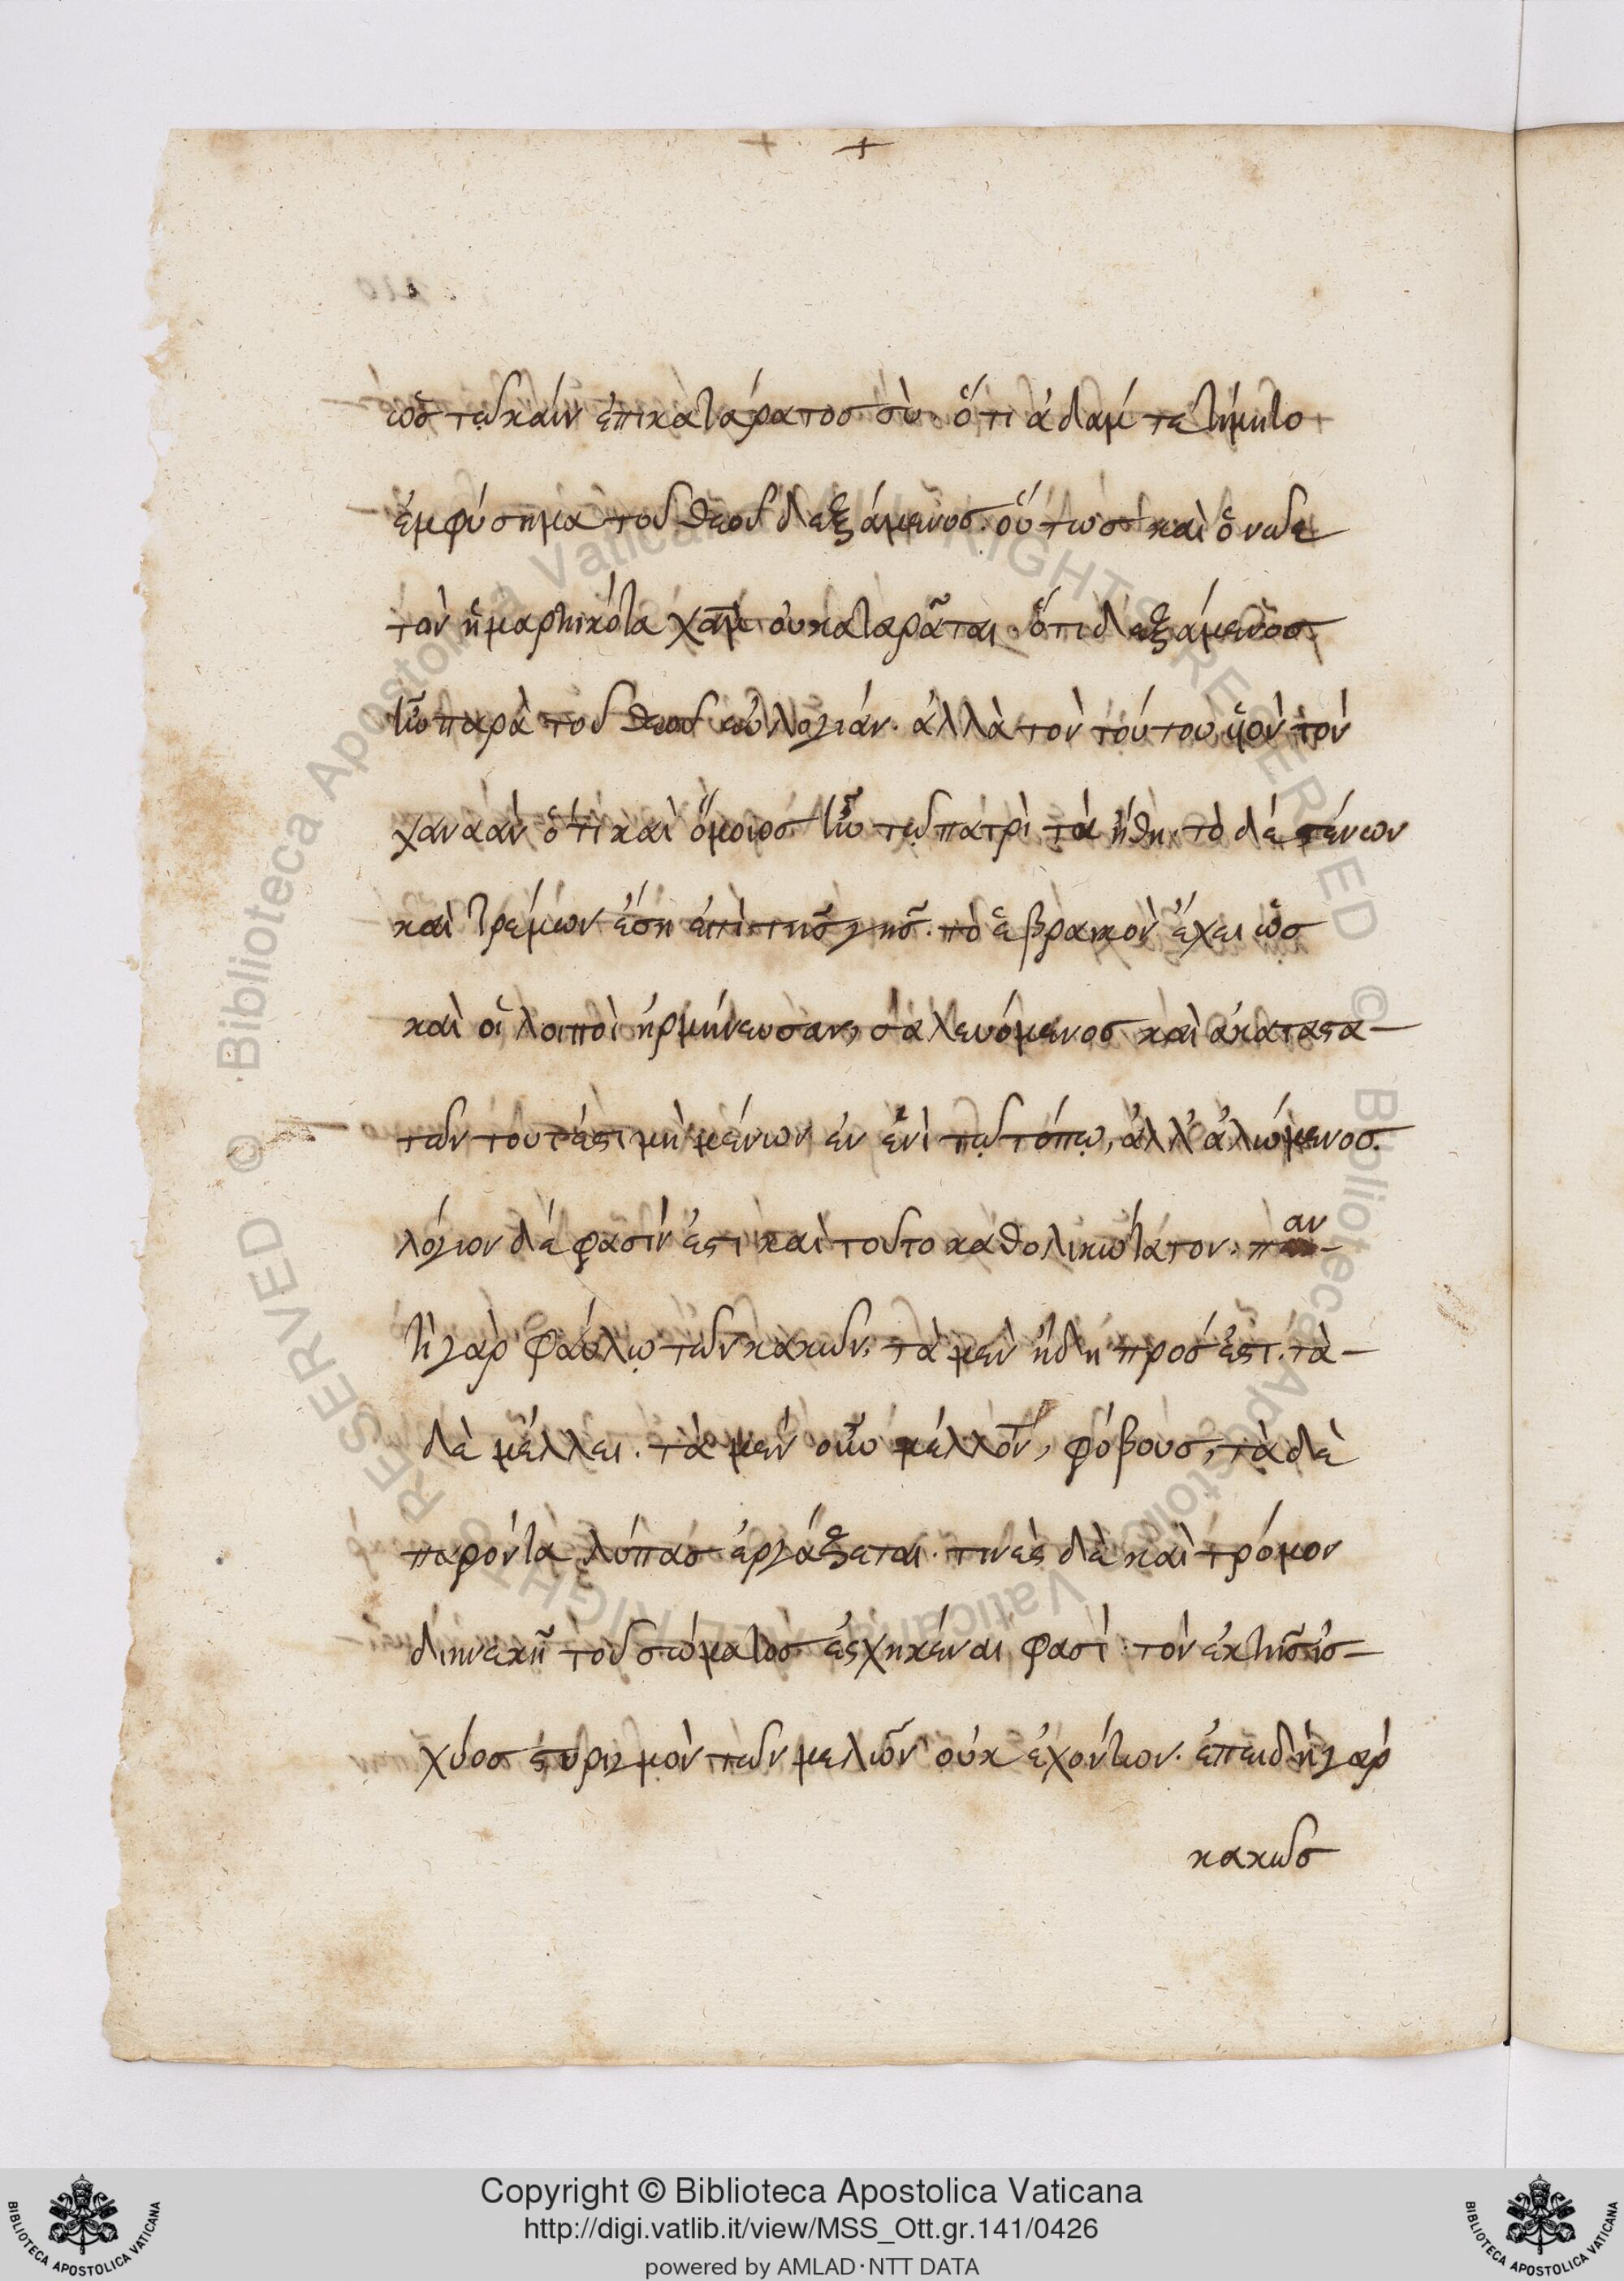 ὡς τῷ κάϊν ἐπικατάρατος σὺ. ὅτι ἀδαμ τετίμητο
ἐμφύσημα τοῦ θεοῦ δεξάμενος. οὕτως καὶ ὁ νῶε
τὸν ἡμαρτηκότα χαμ οὐ καταρᾶται. ὅτι δεξάμενος
ἦν παρὰ τοῦ θεοῦ εὐλογίαν. ἀλλὰ τὸν τούτου υἱὸν τὸν
χαναὰν ὅτι καὶ ὅμοιος ἦν τῷ πατρὶ τὰ ἤθη. τὸ δέ στένων
καὶ τρέμων ἔσῃ ἐπὶ τῆς γῆς. τὸ ἑβραικὸν ἔχει ὡς
καὶ οἱ λοιποὶ ἡρμήνευσαν, σαλευόμενος καὶ ἀκαταστα-
τῶν τουτέστι μὴ μένων ἐν ἑνὶ τῷ τόπῳ, ἀλλ' ἀλώμενος.
λόγιον δέ φασίν ἐστι καὶ τοῦτο καθολικώτατον. παν-
τὶ γὰρ φαύλῳ τῶν κακῶν, τὰ μὲν ἤδη πρόσεστι. τὰ-
δὲ μέλλει. τὰ μὲν οὖν μέλλοντ, φόβους, τὰ δὲ
παρόντα λύπας ἐργάζεται. τινὲς δὲ καὶ τρόμον
διηνεκῆ τοῦ σώματος ἐσχηκέναι φασὶ. τὸν ἐκ τῆς ἰσ-
χύος στυριγμὸν τῶν μελῶν οὐκ ἐχόντων. ἐπειδὴ γὰρ
κακῶς
Copyright © Biblioteca Apostolica Vaticana
http://digi.vatlib.it/view/MSS_Ott.gr.141/0426
powered by AMLAD·NTT DATA